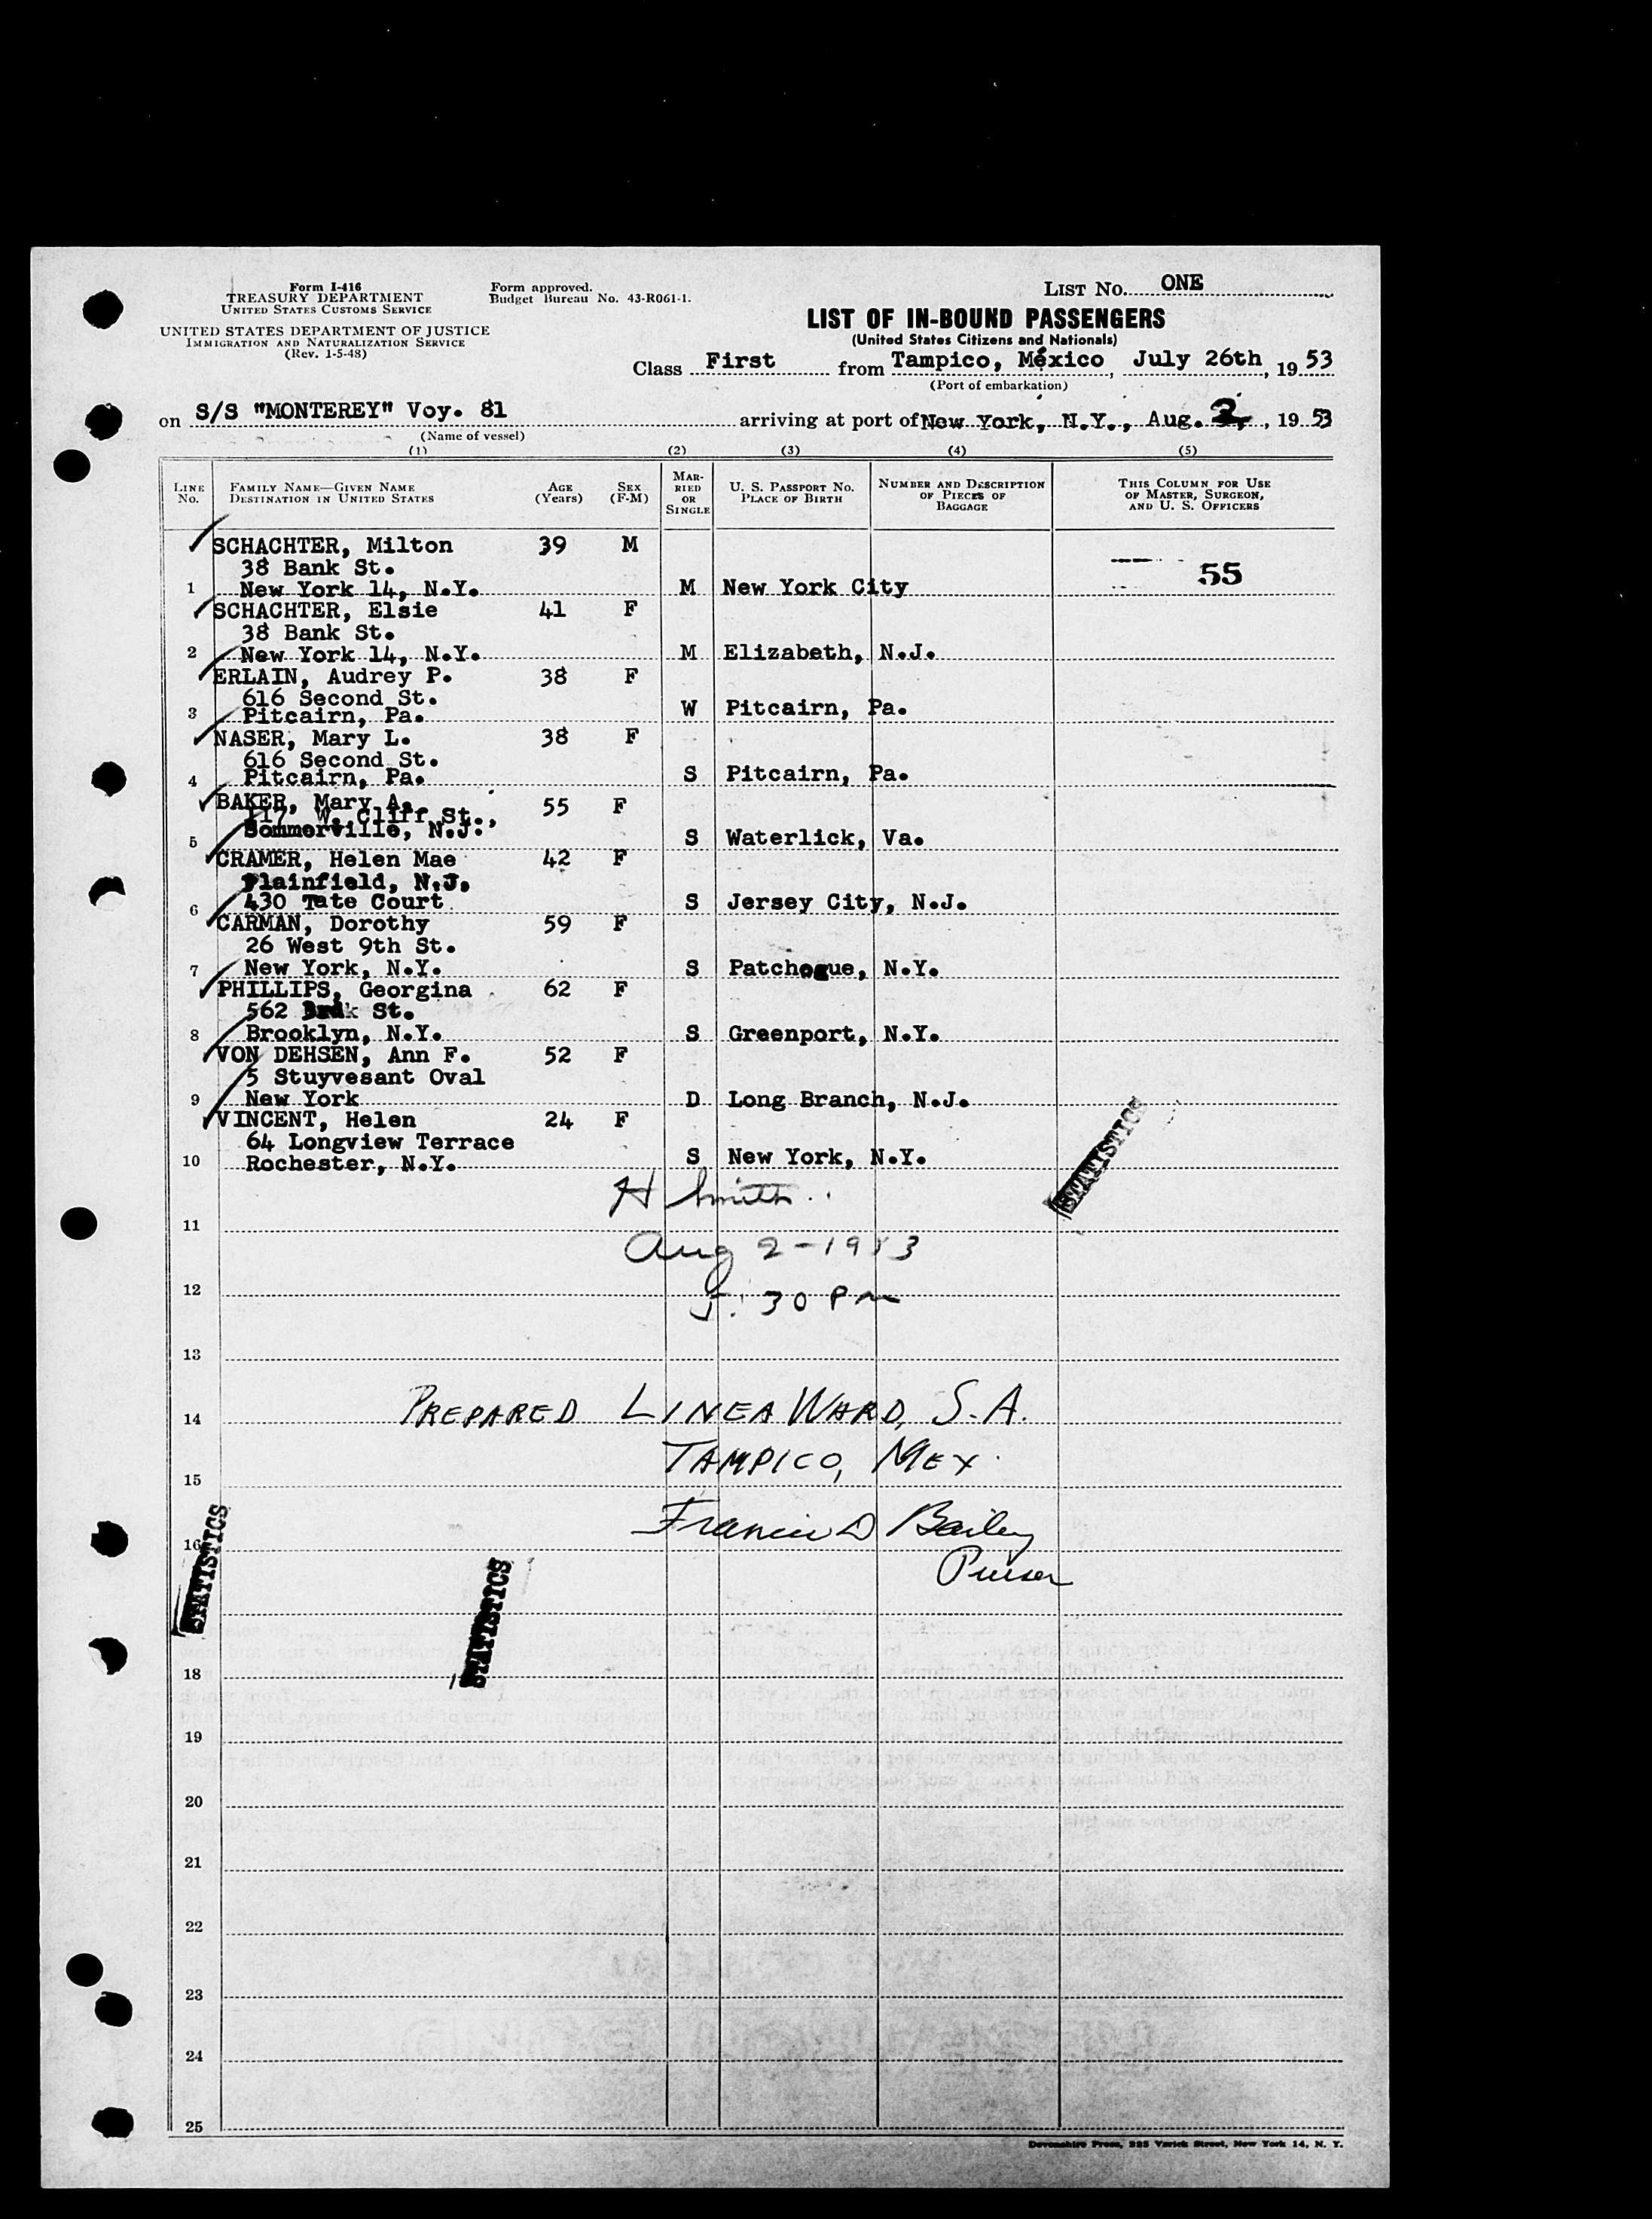 Form I-416
TREASURY DEPARTMENT
UNITED STATES CUSTOMS SERVICE
UNITED STATES DEPARTMENT OF JUSTICE
IMMIGRATION AND NATURALIZATION SERVICE
(Rev. 1-5-48)
Form approved.
Budget Bureau No. 43-R061-1.
LIST NO. ONE
LIST OF IN-BOUND PASSENGERS
(United States Citizens and Nationals)
Class First from Tampico, México, July 26th, 19 53
(Port of embarkation)
on S/S "MONTEREY" Voy. 81 arriving at port of New York, N.Y., Aug. 2, 19 53
(Name of vessel)
(1) (2) (3) (4) (5)
LINE NO. FAMILY NAME—GIVEN NAME DESTINATION IN UNITED STATES AGE (Years) SEX (F-M) MARRIED OR SINGLE U. S. PASSPORT NO. PLACE OF BIRTH NUMBER AND DESCRIPTION OF PIECES OF BAGGAGE THIS COLUMN FOR USE OF MASTER, SURGEON, AND U. S. OFFICERS
SCHACHTER, Milton 39 M
38 Bank St. 55
1 New York 14, N.Y. M New York City
SCHACHTER, Elsie 41 F
38 Bank St.
2 New York 14, N.Y. M Elizabeth, N.J.
ERLAIN, Audrey P. 38 F
616 Second St.
3 Pitcairn, Pa. W Pitcairn, Pa.
NASER, Mary L. 38 F
616 Second St.
4 Pitcairn, Pa. S Pitcairn, Pa.
BAKER, Mary A. 55 F
117 W. Cliff St.,
Sommerville, N.J.
5 S Waterlick, Va.
CRAMER, Helen Mae 42 F
Plainfield, N.J.
6 430 Tate Court S Jersey City, N.J.
CARMAN, Dorothy 59 F
26 West 9th St.
7 New York, N.Y. S Patchogue, N.Y.
PHILLIPS, Georgina 62 F
562 St.
8 Brooklyn, N.Y. S Greenport, N.Y.
VON DEHSEN, Ann F. 52 F
5 Stuyvesant Oval
9 New York D Long Branch, N.J.
VINCENT, Helen 24 F
64 Longview Terrace
10 Rochester, N.Y. S New York, N.Y.
STATISTICS
H Smith
11
Aug 2-1953
12
5:30 PM
13
14 PREPARED LINEA WARD, S.A.
TAMPICO, MEX.
15
Francis D Bailey
16
Purser
STATISTICS
STATISTICS
18
19
20
21
22
23
24
25
Devonshire Press, 225 Varick Street, New York 14, N. Y.